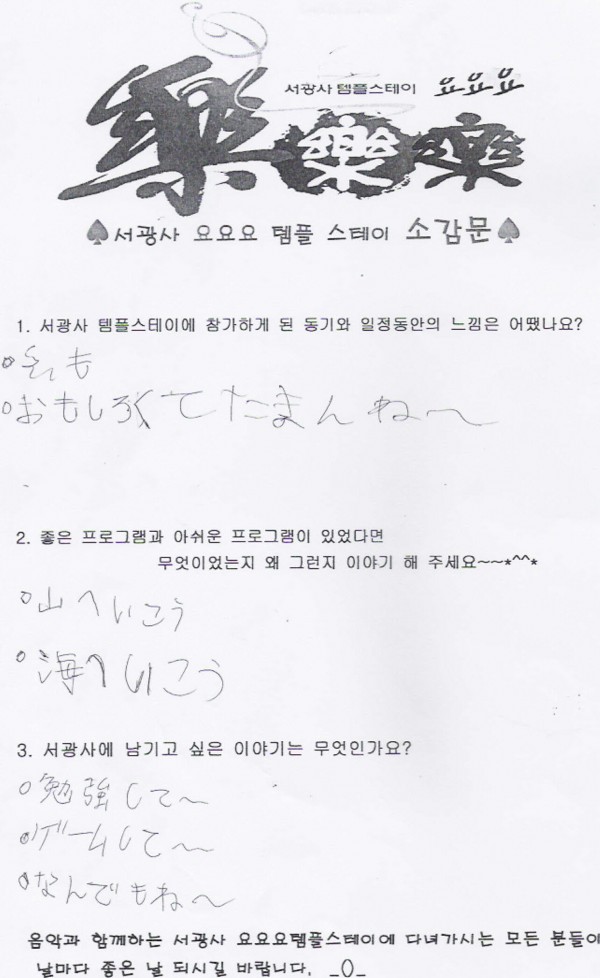 서광사 템플스테이 요요요
樂樂樂
♠서광사 요요요 템플 스테이 소감문♠
1. 서광사 템플스테이에 참가하게 된 동기와 일정동안의 느낌은 어땠나요?
も
おもしろくてたまんね～
2. 좋은 프로그램과 아쉬운 프로그램이 있었다면
무엇이었는지 왜 그런지 이야기 해 주세요~~*^^*
山へいこう
海へいこう
3. 서광사에 남기고 싶은 이야기는 무엇인가요?
勉強して～
ゲームして～
なんでもね～
음악과 함께하는 서광사 요요요템플스테이에 다녀가시는 모든 분들이
날마다 좋은 날 되시길 바랍니다. _()_